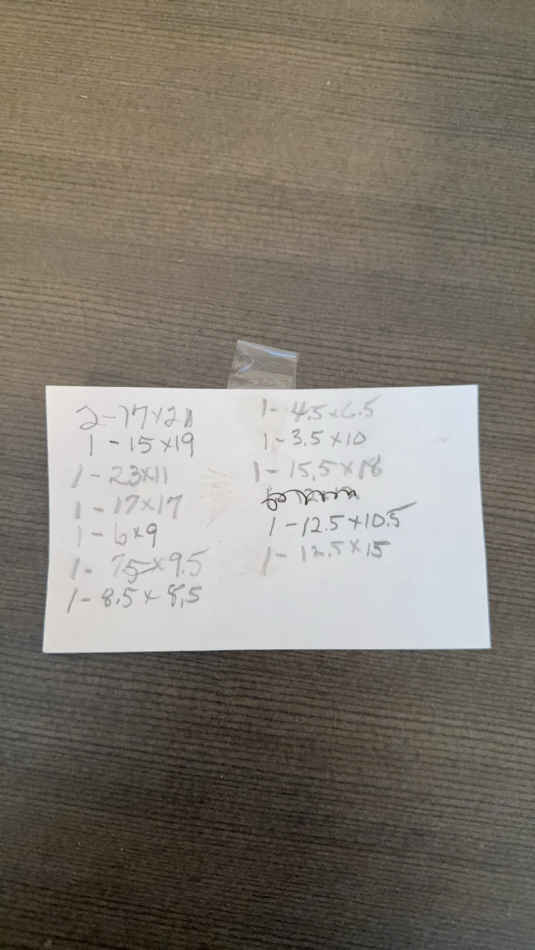 2-17x21
1-15x19
1-23x11
1-17x17
1-6x9
1- 75x9.5
1-8.5x8.5
1-4.5x6.5
1-3.5x10
1-15.5x18
1-12.5x10.5
1-12.5x15